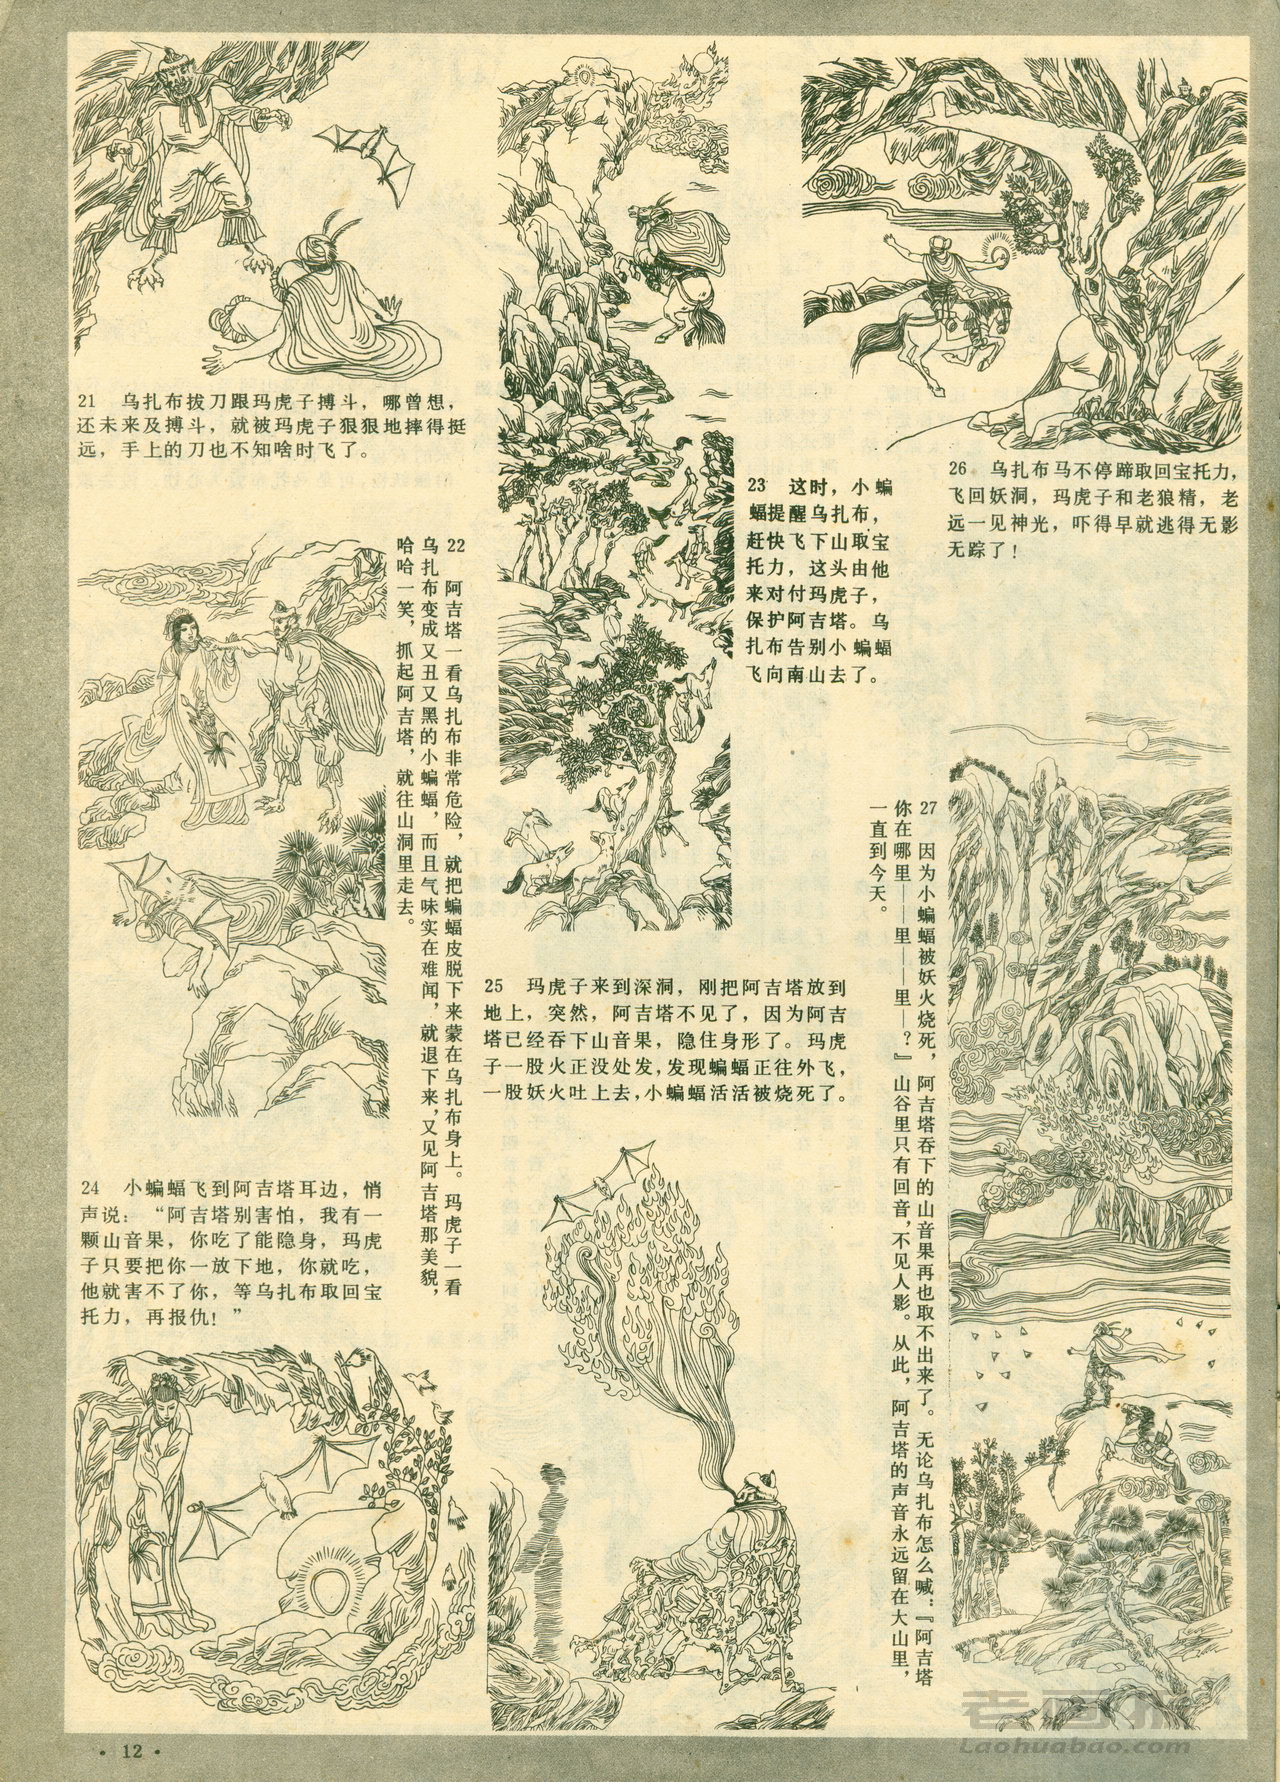 21 乌扎布拔刀跟玛虎子搏斗，哪曾想，
还未来及搏斗，就被玛虎子狠狠地摔得挺
远，手上的刀也不知啥时飞了。
22 阿吉塔一看乌扎布非常危险，就把蝙蝠皮脱下来蒙在乌扎布身上。玛虎子一看
乌扎布变成又丑又黑的小蝙蝠，而且气味实在难闻，就退下来，又见阿吉塔那美貌，
哈哈一笑，抓起阿吉塔，就往山洞里走去。
23 这时，小蝙
蝠提醒乌扎布，
赶快飞下山取宝
托力，这头由他
来对付玛虎子，
保护阿吉塔。乌
扎布告别小蝙蝠
飞向南山去了。
24 小蝙蝠飞到阿吉塔耳边，悄
声说：“阿吉塔别害怕，我有一
颗山音果，你吃了能隐身，玛虎
子只要把你一放下地，你就吃，
他就害不了你，等乌扎布取回宝
托力，再报仇！”
25 玛虎子来到深洞，刚把阿吉塔放到
地上，突然，阿吉塔不见了，因为阿吉
塔已经吞下山音果，隐住身形了。玛虎
子一股火正没处发，发现蝙蝠正往外飞，
一股妖火吐上去，小蝙蝠活活被烧死了。
26 乌扎布马不停蹄取回宝托力，
飞回妖洞，玛虎子和老狼精，老
远一见神光，吓得早就逃得无影
无踪了！
27 因为小蝙蝠被妖火烧死，阿吉塔吞下的山音果再也取不出来了。无论乌扎布怎么喊：『阿吉塔
你在哪里——里——里—？』山谷里只有回音，不见人影。从此，阿吉塔的声音永远留在大山里，
一直到今天。
· 12 ·
老画报
Laohuabao.com